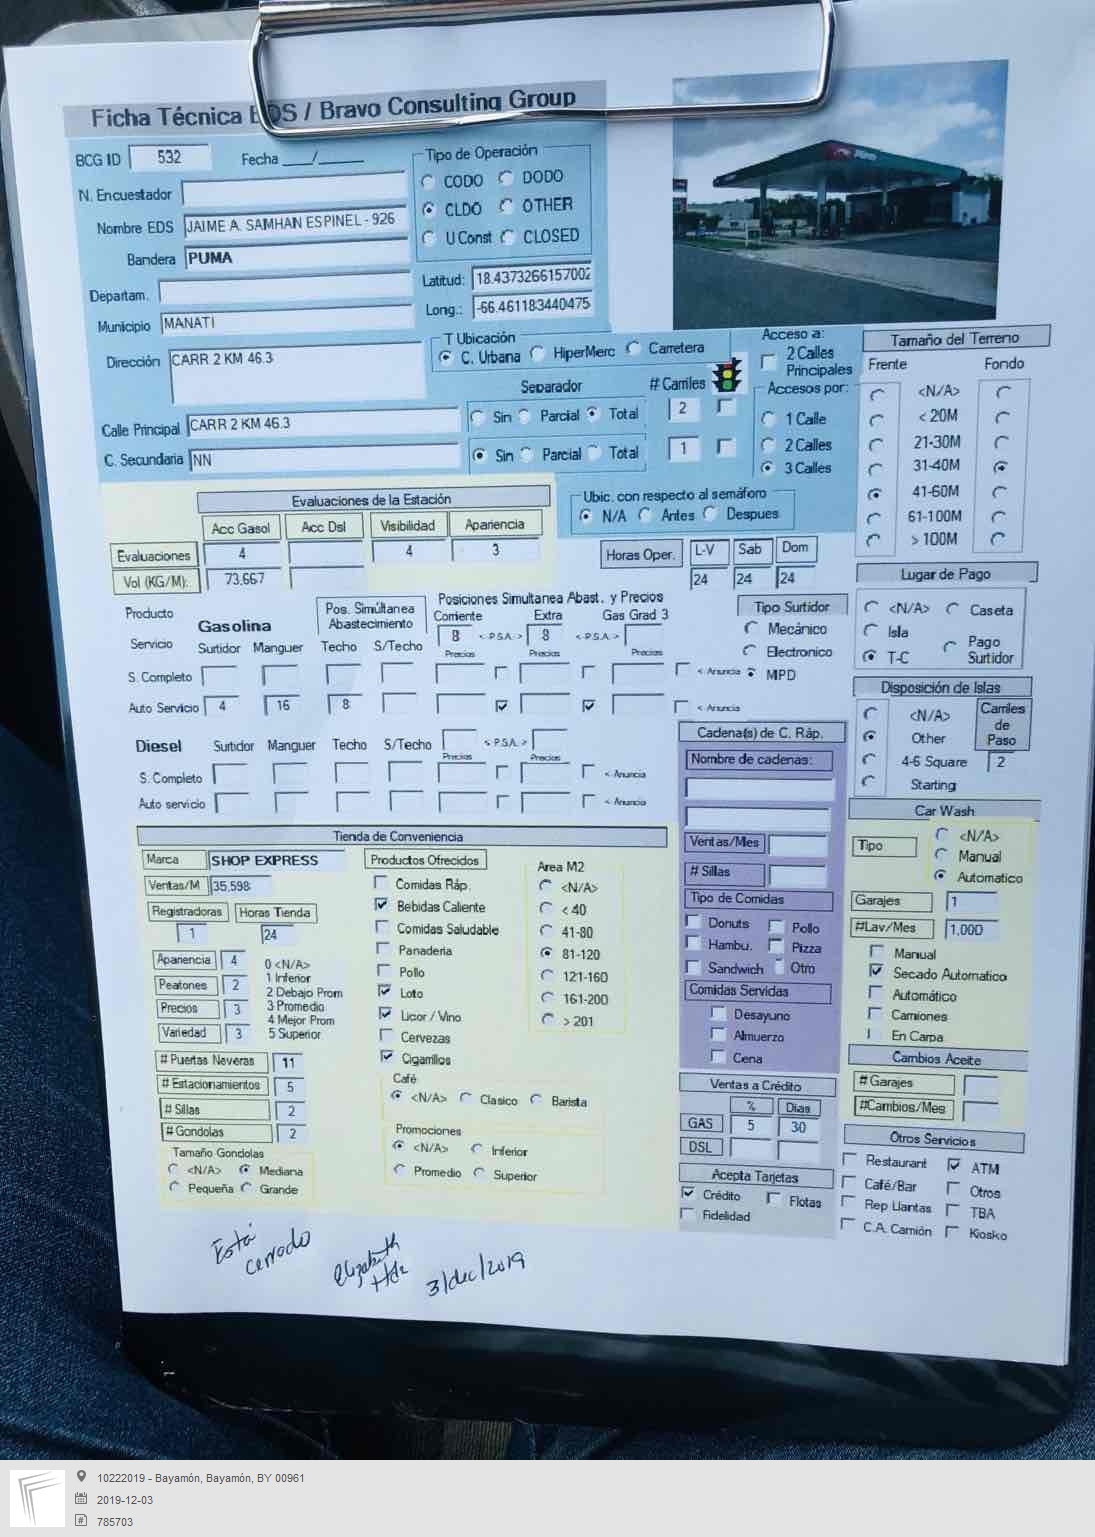 Ficha Técnica EDS / Bravo Consulting Group
BCG ID 532 Fecha ___/_____
N. Encuestador
Nombre EDS JAIME A. SAMHAN ESPINEL - 926
Bandera PUMA
Departam.
Municipio MANATI
Dirección CARR 2 KM 46.3
Calle Principal CARR 2 KM 46.3
C. Secundaria NN
Tipo de Operación
CODO DODO
CLDO OTHER
U Const CLOSED
Latitud: 18.4373266157002
Long.: -66.461183440475
T Ubicación
C. Urbana HiperMerc Carretera
Separador # Carriles
Sin Parcial Total 2
Sin Parcial Total 1
Acceso a:
2 Calles
Principales
Accesos por:
1 Calle
2 Calles
3 Calles
Ubic. con respecto al semáforo
N/A Antes Despues
Tamaño del Terreno
Frente Fondo
<N/A>
< 20M
21-30M
31-40M
41-60M
61-100M
> 100M
Evaluaciones de la Estación
Acc Gasol Acc Dsl Visibilidad Apariencia
Evaluaciones 4 4 3
Vol (KG/M): 73,667
Horas Oper. L-V Sab Dom
24 24 24
Lugar de Pago
<N/A> Caseta
Isla
T-C
Pago
Surtidor
Producto
Servicio
Gasolina
Pos. Simúltanea
Abastecimiento
Posiciones Simultanea Abast. y Precios
Corriente Extra Gas Grad 3
8 < P.S.A. > 8 < P.S.A. >
Surtidor Manguer Techo S/Techo Precios Precios Precios
S. Completo < Anuncia
Auto Servicio 4 16 8 < Anuncia
Tipo Surtidor
Mecánico
Electronico
MPD
Diesel Surtidor Manguer Techo S/Techo < P.S.A. >
Precios Precios
S. Completo < Anuncia
Auto servicio < Anuncia
Disposición de Islas
<N/A>
Other
4-6 Square
Starting
Carriles
de
Paso
2
Cadena(s) de C. Ráp.
Nombre de cadenas:
Ventas/Mes
# Sillas
Tipo de Comidas
Donuts Pollo
Hambu. Pizza
Sandwich Otro
Comidas Servidas
Desayuno
Almuerzo
Cena
Car Wash
Tipo
<N/A>
Manual
Automatico
Garajes 1
#Lav/Mes 1,000
Manual
Secado Automatico
Automático
Camiones
En Carpa
Cambios Aceite
# Garajes
#Cambios/Mes
Tienda de Conveniencia
Marca SHOP EXPRESS
Ventas/M 35,598
Registradoras Horas Tienda
1 24
Apariencia 4
Peatones 2
Precios 3
Variedad 3
0 <N/A>
1 Inferior
2 Debajo Prom
3 Promedio
4 Mejor Prom
5 Superior
# Puertas Neveras 11
# Estacionamientos 5
# Sillas 2
# Gondolas 2
Tamaño Gondolas
<N/A> Mediana
Pequeña Grande
Productos Ofrecidos
Comidas Ráp.
Bebidas Caliente
Comidas Saludable
Panaderia
Pollo
Loto
Licor / Vino
Cervezas
Cigarrillos
Area M2
<N/A>
< 40
41-80
81-120
121-160
161-200
> 201
Café
<N/A> Clasico Barista
Promociones
<N/A> Inferior
Promedio Superior
Ventas a Crédito
% Dias
GAS 5 30
DSL
Acepta Tarjetas
Crédito Flotas
Fidelidad
Otros Servicios
Restaurant ATM
Café/Bar Otros
Rep Llantas TBA
C.A. Camión Kiosko
Está
cerrado
Elizabeth
Hdz
3/dec/2019
10222019 - Bayamón, Bayamón, BY 00961
2019-12-03
785703